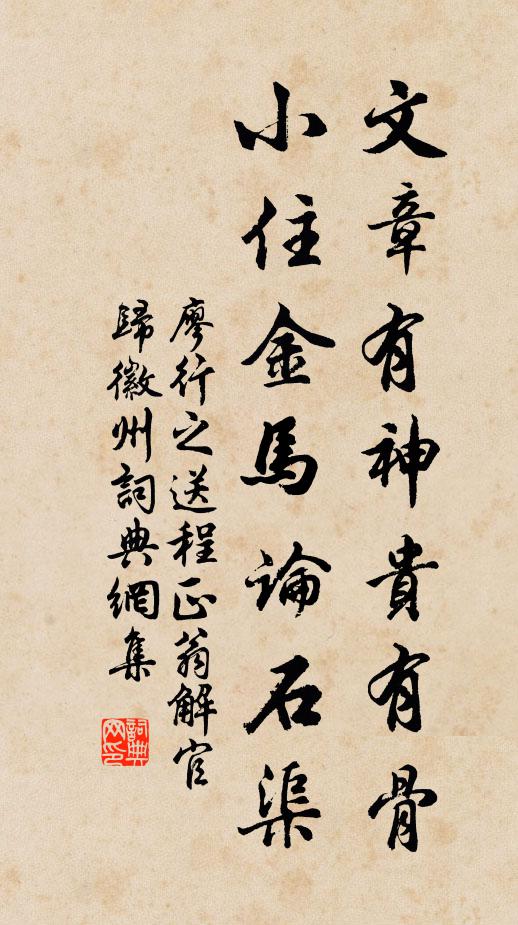 文章有神貴有骨
小住金馬論石渠
廖行之送程正翁解官
歸徽州詞典網集
詞典网印